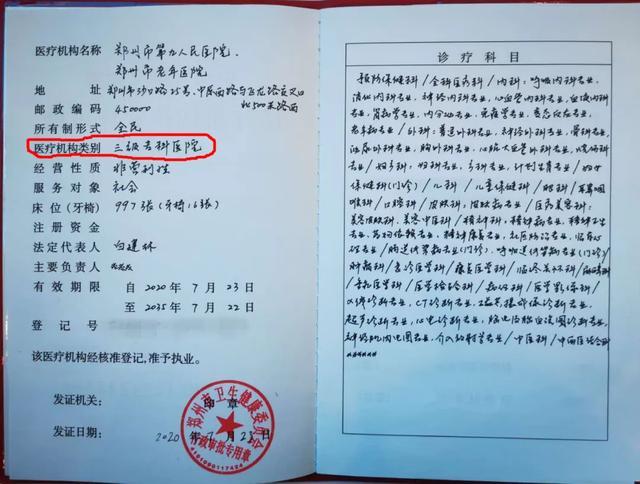 医疗机构名称 郑州市第九人民医院.
郑州市老年医院
地 址 郑州市沙口路25号,中原西路与飞龙路交叉口
北500米路西
邮政编码 450000
所有制形式 全民
医疗机构类别 三级专科医院
经营性质 非营利性
服务对象 社会
床位(牙椅) 997张(牙椅:6张)
注册资金
法定代表人 白建林
主要负责人
有效期限 自 2020 年 7 月 23 日
至 2035 年 7 月 22 日
登 记 号
该医疗机构经核准登记,准予执业。
发证机关: 印 章
发证日期: 2020 年 7 月 23 日
郑州市卫生健康委员会
行政审批专用章
4101090117424
诊 疗 科 目
预防保健科/全科医疗科/内科:呼吸内科专业/
消化内科专业/神经内科专业/心血管内科专业/血液内科
专业/肾病学专业/内分泌专业/免疫学专业/变态反应专业/
老年病专业/外科:普通外科专业/神经外科专业/骨科专业/
泌尿外科专业/胸外科专业/心脏大血管外科专业/烧伤科
专业/妇产科:妇科专业/产科专业/计划生育专业/妇女
保健科(门诊)/儿科/儿童保健科/眼科/耳鼻咽
喉科/口腔科/皮肤科:皮肤病专业/医疗美容科:
美容皮肤科.美容中医科/精神科:精神病专业/精神卫生
专业/药物依赖专业/精神康复专业/社区防治专业/临床心
理专业/肠道传染病专业(门诊).呼吸道传染病专业(门诊)/
肿瘤科/急诊医学科/康复医学科/临终关怀科/麻醉科/
重症医学科/医学检验科/病理科/医学影像科/
X线诊断专业/CT诊断专业/磁共振成像诊断专业/
超声诊断专业/心电诊断专业/脑电及脑血流图诊断专业/
神经肌肉电图专业/介入放射学专业/中医科/中西医结合科